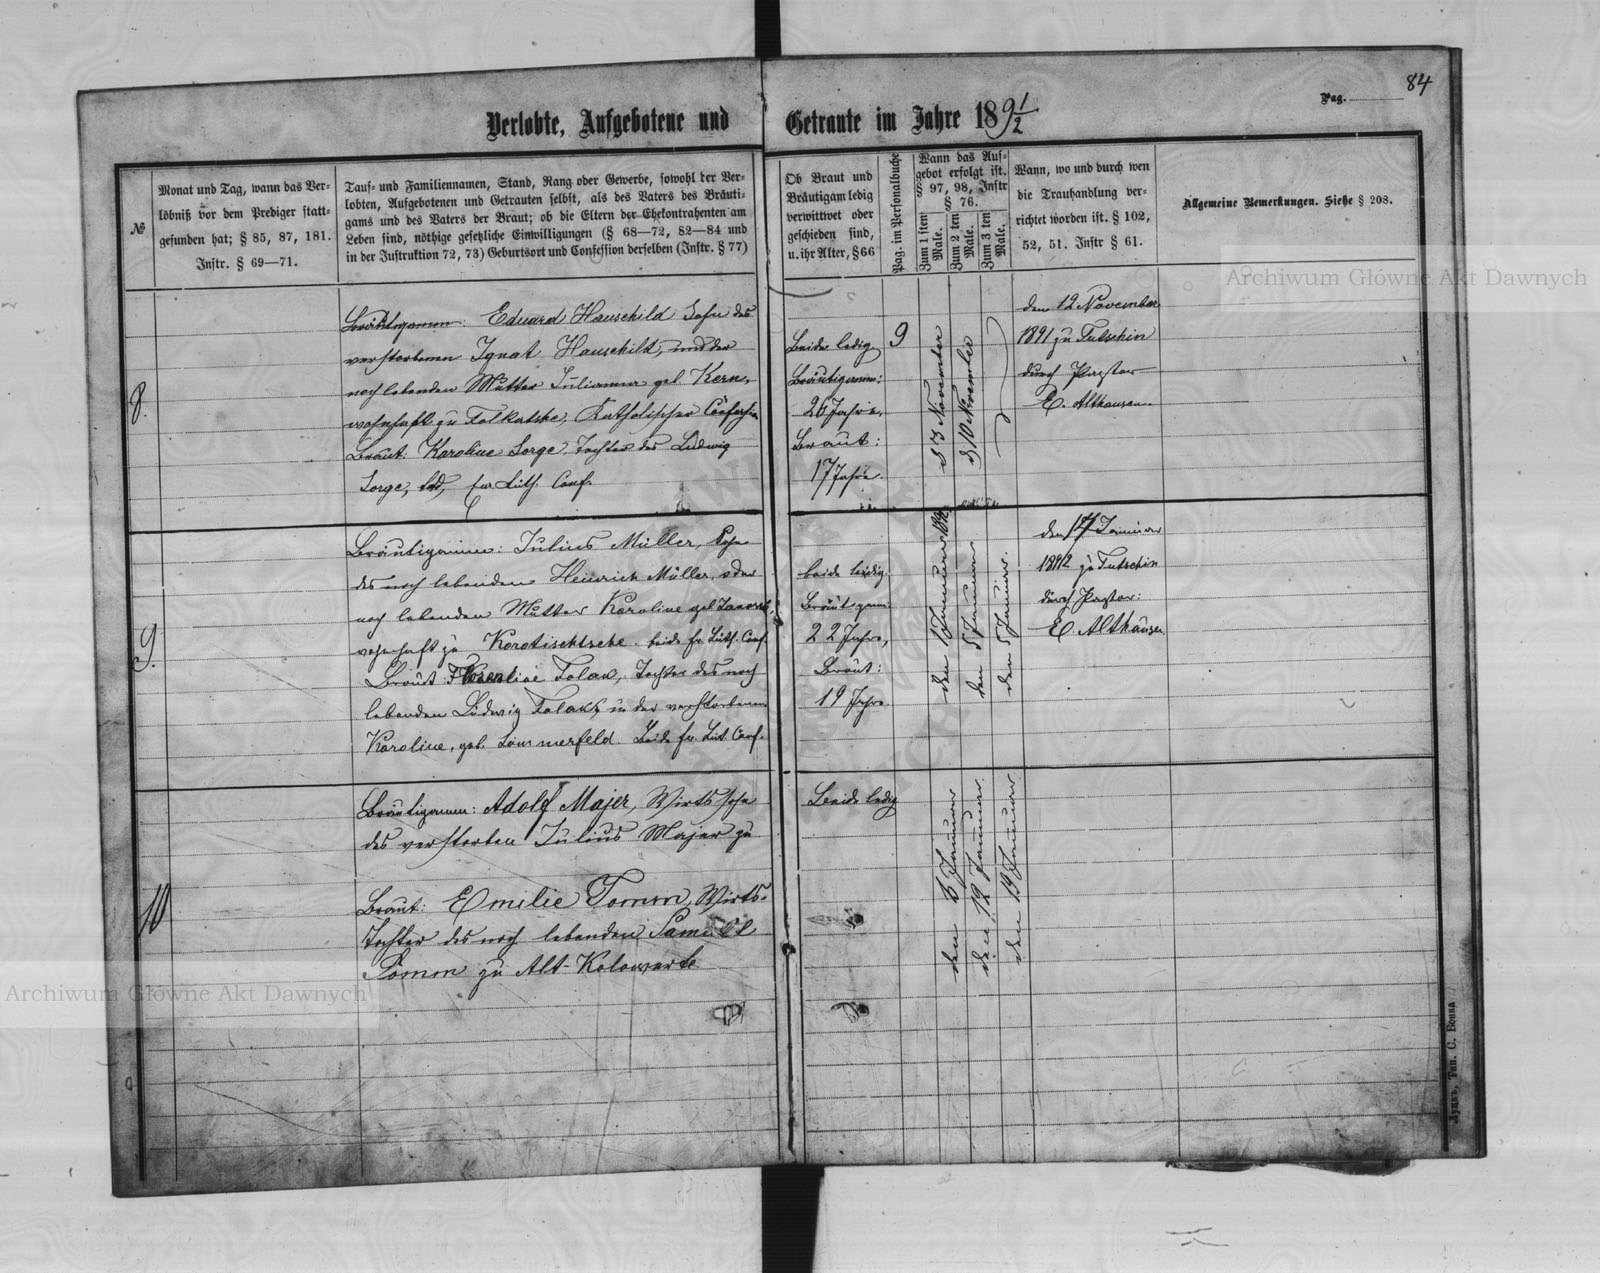 84
Pag.
Verlobte, Aufgebotene und Getraute im Jahre 189 1/2
№
Monat und Tag, wann das Ver-
löbniß vor dem Prediger statt-
gefunden hat; § 85, 87, 181.
Instr. § 69—71.
Tauf- und Familiennamen, Stand, Rang oder Gewerbe, sowohl der Ver-
lobten, Aufgebotenen und Getrauten selbst, als des Vaters des Bräuti-
gams und des Vaters der Braut; ob die Eltern der Ehekontrahenten am
Leben sind, nöthige gesetzliche Einwilligungen (§ 68—72, 82—84 und
in der Instruktion 72, 73) Geburtsort und Confession derselben (Instr. § 77)
Ob Braut und
Bräutigam ledig
verwittwet oder
geschieden sind,
u. ihr Alter, § 66
Pag. im Personalbuche
Wann das Auf-
gebot erfolgt ist.
§ 97, 98, Instr
§ 76.
Zum 1 ten Male.
Zum 2 ten Male.
Zum 3 ten Male.
Wann, wo und durch wen
die Trauhandlung ver-
richtet worden ist. § 102,
52, 51. Instr § 61.
Allgemeine Bemerkungen. Siehe § 208.
8.
Bräutigamm: Eduard Hauschild Sohn des
verstorbenen Ignat Hauschild, und der
noch lebenden Mutter Julianna geb. Kern,
wohnhaft zu
Katholischer Confession
Braut: Karoline Sorge, Tochter des Ludwig
Sorge, led, ev. Luth. Conf.
Beide ledig
Bräutigamm:
26 Jahre,
Braut:
17 Jahre.
9
d 3 November
d 10 November
den 12 November
1891 zu Tutschin
durch Pastor
E. Althausen.
9.
Bräutigamm: Julius Müller, Sohn
des noch lebenden Heinrich Müller, u der
noch lebenden Mutter Karoline geb
wohnhaft zu Korotischtsche beide ev. Luth. Conf.
Braut
Tochter des noch
lebenden Ludwig
u der verstorbenen
Karoline, geb. Sommerfeld. Beide ev. Lut. Conf.
beide ledig.
Bräutgam:
22 Jahre,
Braut:
19 Jahre
den 1 Januar 1892
den 5 Januar
den 6 Januar.
den 17 Januar
1892 zu Tutschin
durch Pastor:
E. Althausen.
10
Bräutigamm: Adolf Majer, Wirtssohn
des verstorben Julius Majer zu
Braut: Emilie Tomm, Wirts-
tochter des noch lebenden Samuel
Tomm zu Alt-Kolowerte
Beide ledig
den 6 Januar
den 12 Januar
den 19 Januar
Archiwum Główne Akt Dawnych
Archiwum Główne Akt Dawnych
Луцкъ, Тип. С. Бонка